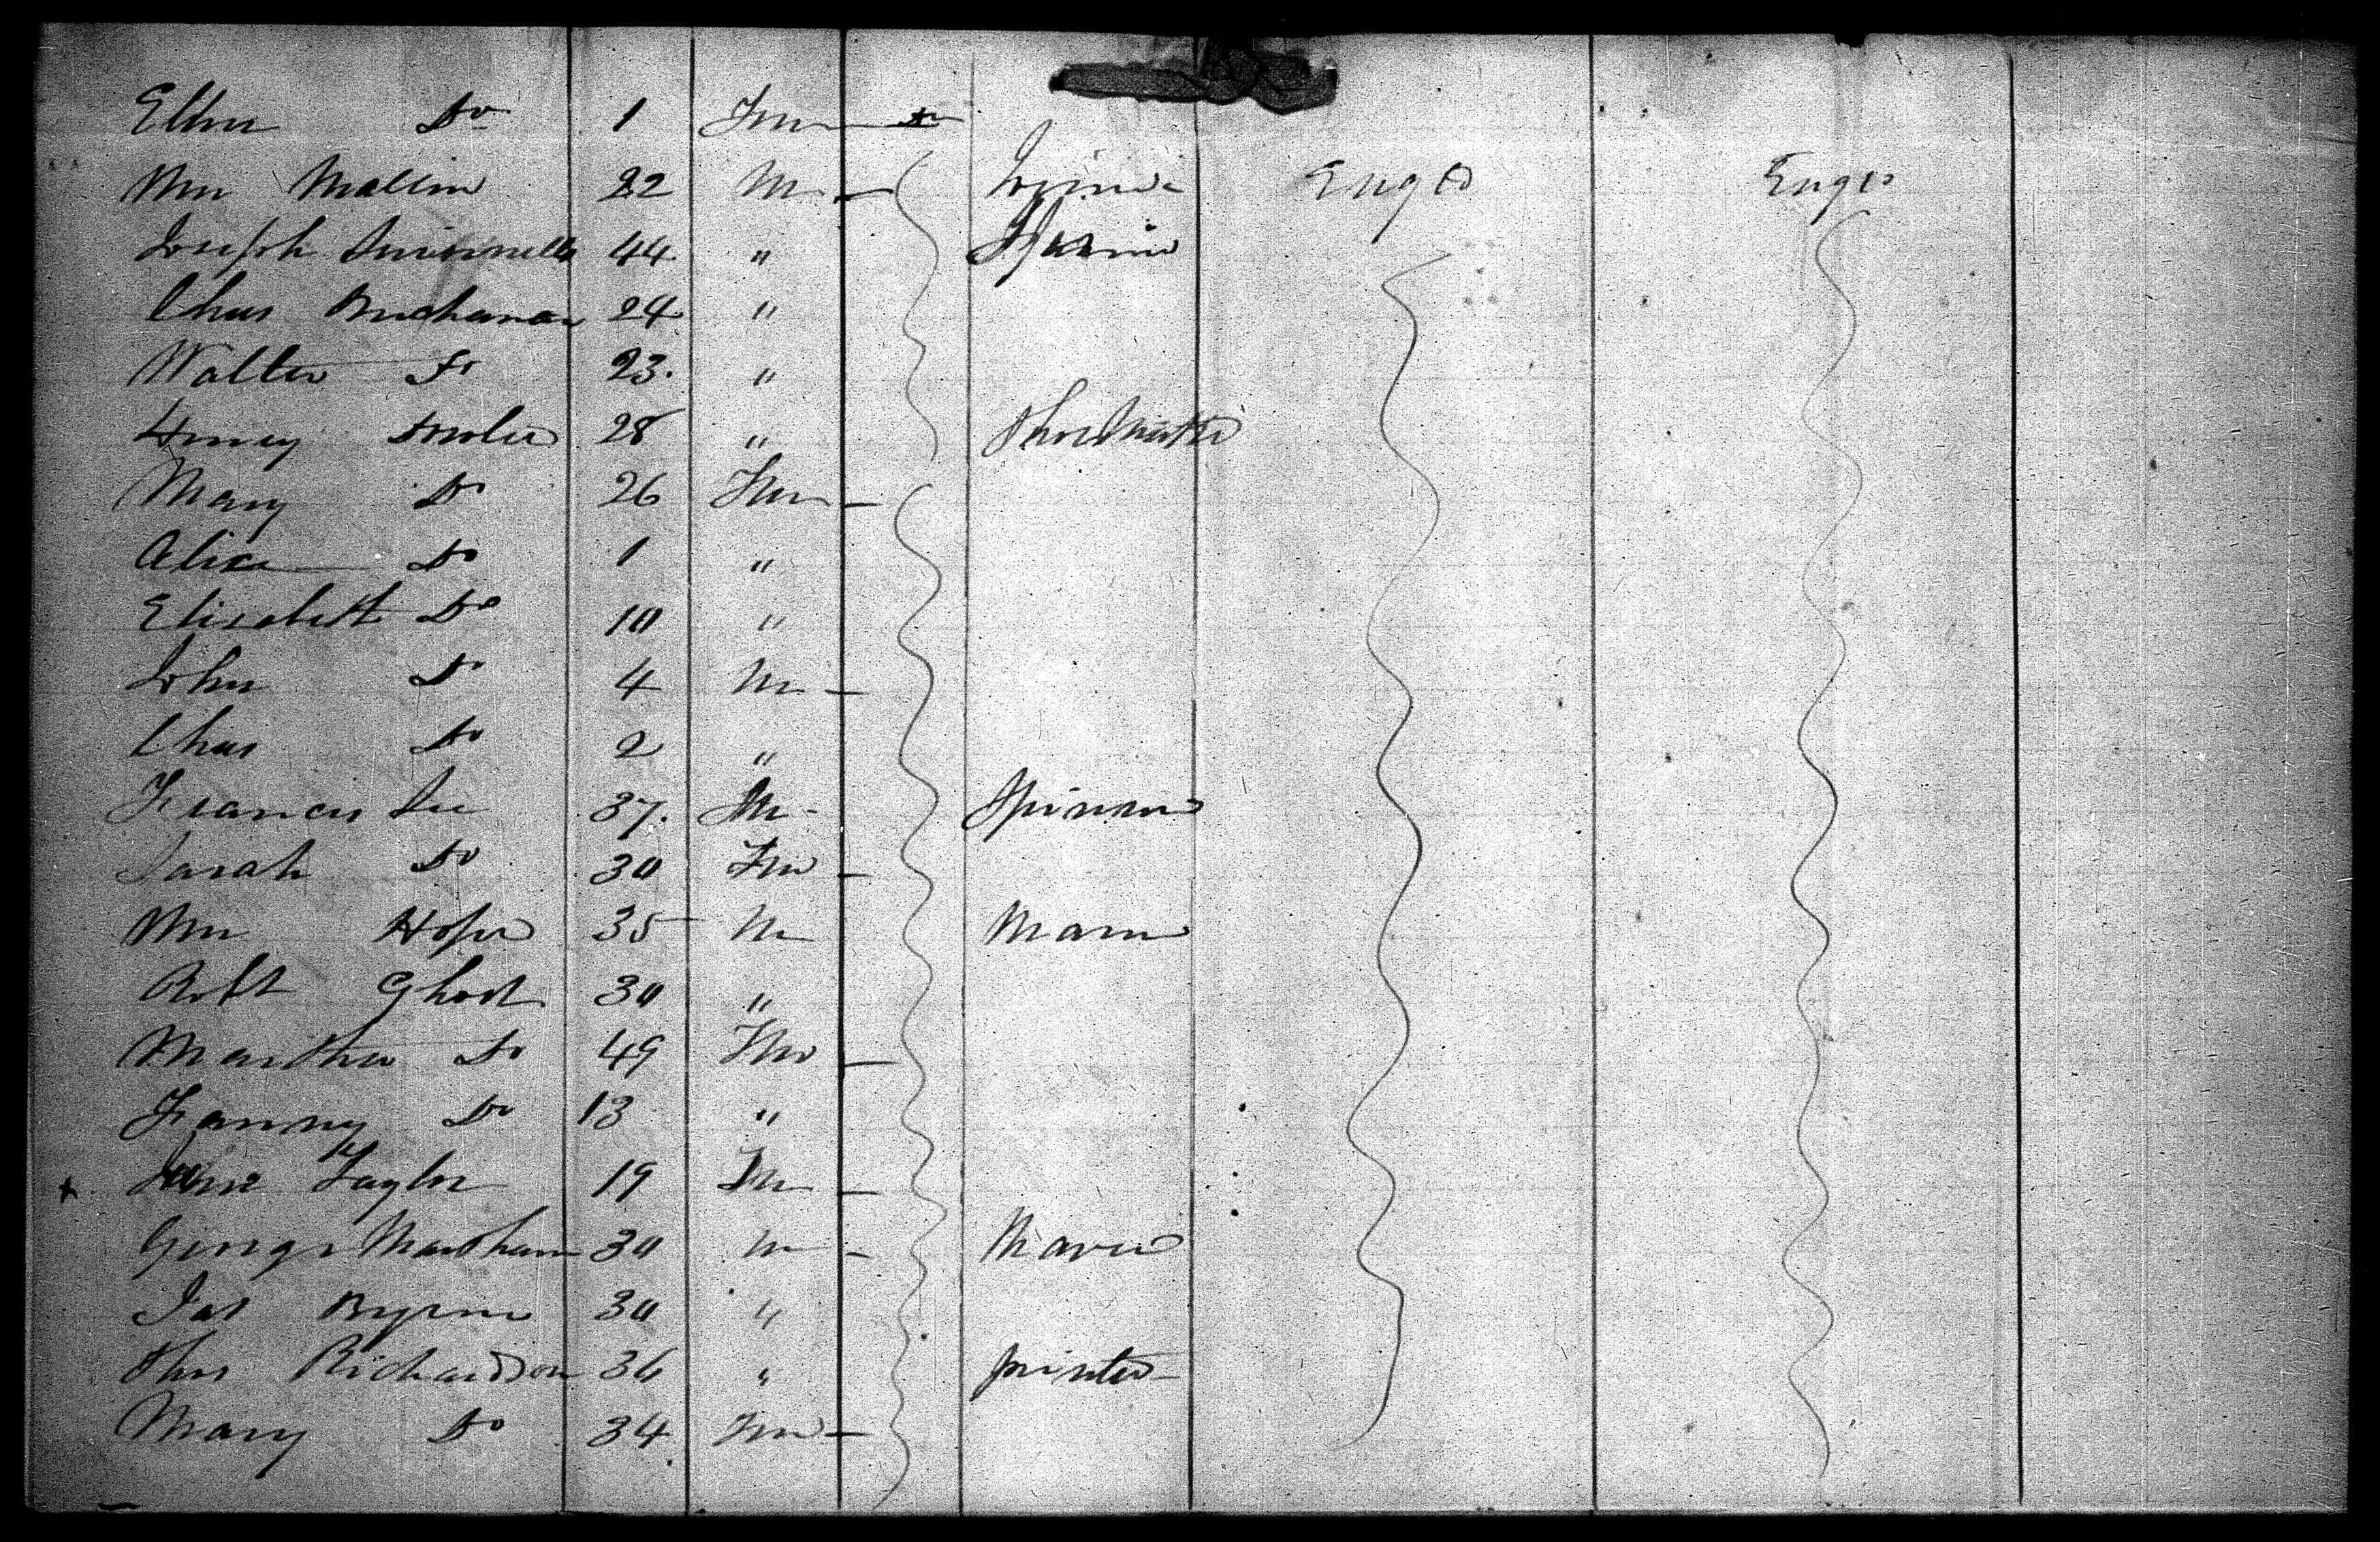 Ellen Do 1 Fm Do
Wm Mallin 22 M Engld Engld
Joseph 44 "
Chas Buchanan 24 "
Walter Do 23 "
Henry 28 " Shoemaker
Mary Do 26 Fm
Alice Do 1 "
Elizabeth Do 10 "
John Do 4 M
Chas Do 2 "
Francis Lee 37 M Spinner
Sarah Do 30 Fm
Wm Hope 35 M Mason
Robt Ghost 30 "
Martha Do 49 Fm
Fanny Do 13 "
x Jane Taylor 19 Fm
George Marsham 30 M
Jas Byrne 30 "
Thos Richardson 36 " printer
Mary Do 34 Fm